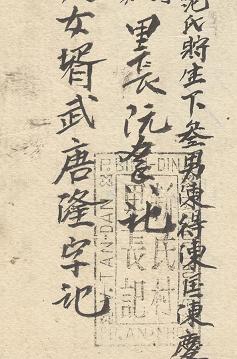 氏貯生下叄男陳得陳匡陳慶
里長阮記
女壻武唐隆字記
TAN-DAN
里長記